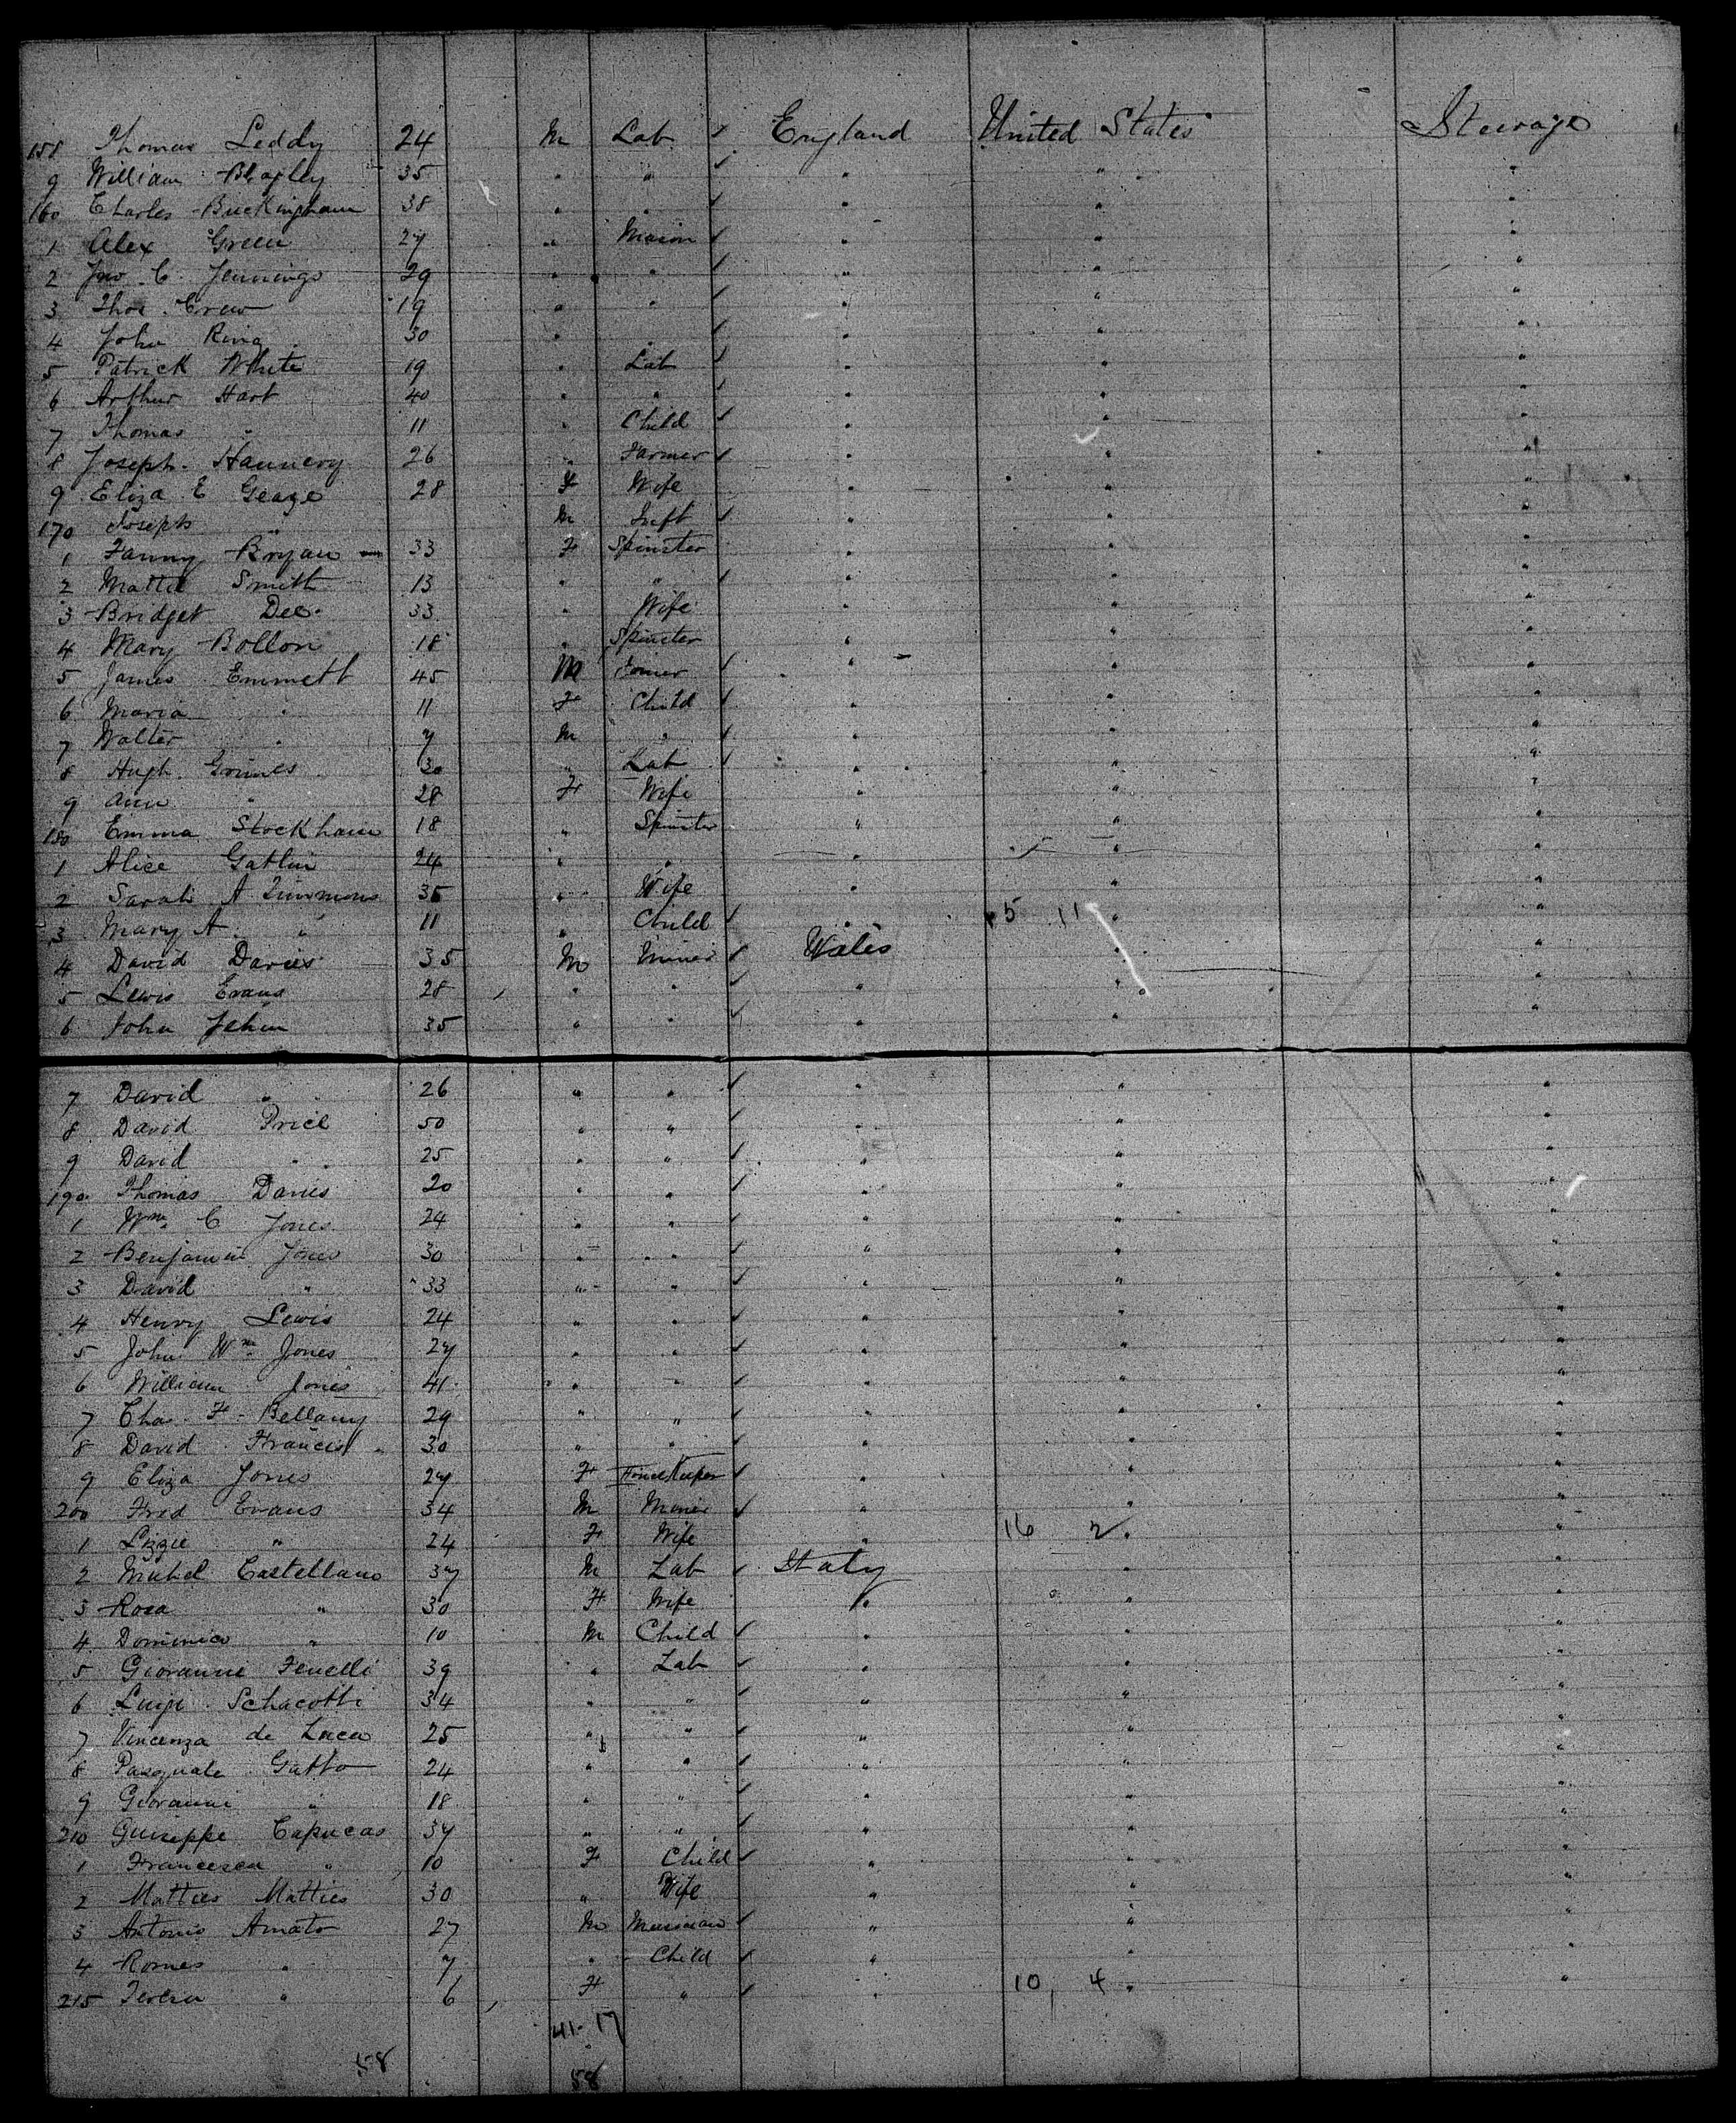 158 Thomas Leddy 24 M Lab ✓ England United States Steerage
9 William 35 " " ✓ " " "
160 Charles Buckingham 38 " " ✓ " " "
1 Alex Green 27 " Mason ✓ " " "
2 Jno. C. Jennings 29 " " ✓ " " "
3 Thos. Crew 19 " " ✓ " " "
4 John Ring 30 " " ✓ " " "
5 Patrick White 19 " Lab ✓ " " "
6 Arthur Hart 40 " " ✓ " " "
7 Thomas " 11 " Child ✓ " " "
8 Joseph Hannery 26 " Farmer ✓ " " "
9 Eliza E 28 F Wife " " "
170 Joseph " M Inft ✓ " " "
1 Fanny Bryan 33 F Spinster " " "
2 Mattie Smith 13 " " ✓ " " "
3 Bridget Dee 33 " Wife " " "
4 Mary Bollon 18 " Spinster " " "
5 James Emmett 45 M ✓ " " "
6 Maria " 11 F Child ✓ " " "
7 Walter " 7 M " ✓ " " "
8 Hugh Grimes 30 " Lab ✓ " " "
9 Ann " 28 F Wife " " "
180 Emma Stockham 18 " Spinster " " "
1 Alice Gatlin 24 " " " " "
2 Sarah A Timmons 35 " Wife " " "
3 Mary A " 11 " Child ✓ " 15 11 " "
4 David Davies 35 M Miner ✓ Wales " "
5 Lewis Evans 28 " " ✓ " " "
6 John Jehu 35 " " ✓ " " "
7 David " 26 " " ✓ " " "
8 David Price 50 " " ✓ " " "
9 David " 25 " " ✓ " " "
190 Thomas Davies 20 " " ✓ " " "
1 Wm. C Jones 24 " " ✓ " " "
2 Benjamin Jones 30 " " ✓ " " "
3 David " 33 " " ✓ " " "
4 Henry Lewis 24 " " ✓ " " "
5 John Wm Jones 27 " " ✓ " " "
6 William Jones 41 " " ✓ " " "
7 Cha. F. Bellamy 29 " " ✓ " " "
8 David Francis 30 " " ✓ " " "
9 Eliza Jones 27 F ✓ " " "
200 Fred Evans 34 M Miner ✓ " " "
1 Lizzie " 24 F Wife " 16 2 " "
2 Michel Castellano 37 M Lab ✓ Italy " "
3 Rosa " 30 F Wife " " "
4 Dominico " 10 M Child ✓ " " "
5 Giovanni Fenelli 39 " Lab ✓ " " "
6 Luigi Schacotti 34 " " ✓ " " "
7 Vincenza de Luca 25 " " ✓ " " "
8 Pasquale Gatto 24 " " ✓ " " "
9 Giovanni " 18 " " ✓ " " "
210 Guiseppe Capucas 37 " " ✓ " " "
1 Francesca " 10 F Child ✓ " " "
2 Matties Matties 30 " Wife " " "
3 Antonio Amato 27 M Musician ✓ " " "
4 Romeo " 7 " Child ✓ " " "
215 " 6 F " ✓ " 10 4 " "
41 17
58 58